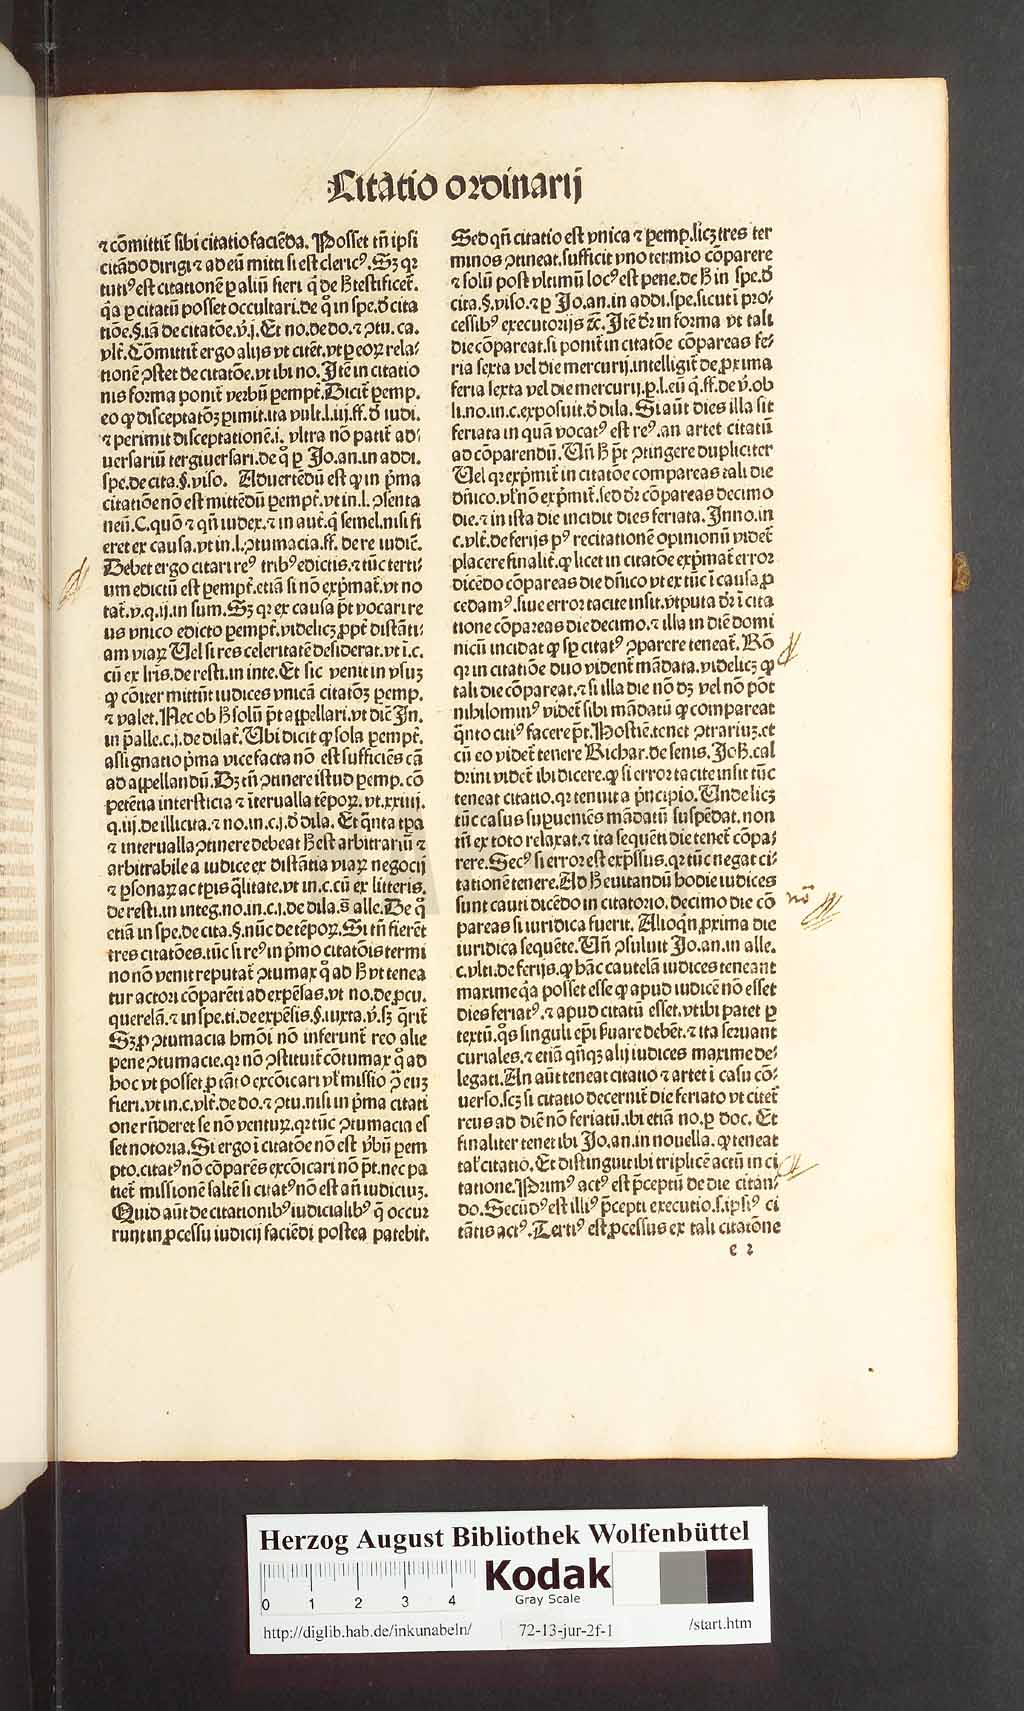 Citatio ordinarij
⁊ cōmittit̄ sibi citatio faciēda. Posset tn̄ ipsi
citādo dirigi ⁊ ad eū mitti si est cleric⁹. Sꝫ qꝛ
tuti⁹ est citationē ꝑ aliū fieri q̄ de H testificet̄.
q̄a ꝑ citatū posset occultari. de qͦ in spe. ð cita
tiōe. §. iā de citatōe. v̄. j. Et no. de do. ⁊ ↄtu. ca.
vlt̄. Cōmittit̄ ergo alijs vt citēt. vt ꝑ eoꝝ rela-
tionē ↄstet de citatōe. vt ibi no. Itē in citatio
nis forma ponit̄ verbū ꝑempt̄. Dicit̄ ꝑemp.
eo ꝙ disceptatōꝫ ꝑimit. ita vult. l. iij. ff. ð iudi.
⁊ perimit disceptationē. i. vltra nō patit̄ ad-
uersariū tergiuersari. de qͦ ꝑ Jo. an. in addi.
spe. de cita. §. viso. Aduertēdū est ꝙ in p̄ma
citatiōe nō est mittēdū ꝑempt̄. vt in. l. ↄsenta
neū. C. quō ⁊ qn̄ iudex. ⁊ in aut̄. q̄ semel. nisi fi
eret ex causa. vt in. l. ↄtumacia. ff. de re iudic̄.
Debet ergo citari re⁹ trib⁹ edictis. ⁊ tūc terti-
um edictū est ꝑempt̄. etiā si nō exp̄mat̄. vt no
tat̄. v. q. ij. in sum. Sꝫ qꝛ ex causa p̄t vocari re
us vnico edicto ꝑempt̄. videlicꝫ ꝓpt̄ distāti-
am viaꝝ Uel si res celeritatē desiderat. vt ī. c.
cū ex lr̄is. de resti. in inte. Et sic venit in vsuꝫ
ꝙ cōiter mittūt iudices vnicā citatōꝫ ꝑemp.
⁊ valet. Nec ob H solū p̄t appellari. vt dic̄ In.
in p̄alle. c. j. de dilat̄. Ubi dicit ꝙ sola ꝑempt̄.
assignatio p̄ma vice facta nō est sufficiēs cā
ad appellandū. Dꝫ tn̄ ↄtinere istud ꝑemp. cō
petētia intersticia ⁊ īterualla tēpoꝝ. vt. xxiiij.
q. iij. de illicita. ⁊ no. in. c. j. ð dila. Et q̄nta tp̄a
⁊ interualla ↄtinere debeat H est arbitrariū ⁊
arbitrabile a iudice ex distātia viaꝝ negocij
⁊ ꝑsonaꝝ ac tp̄is q̄litate. vt in. c. cū ex litteris.
de resti. in integ. no. in. c. j. de dila. s̄ alle. De qͦ
etiā in spe. de cita. §. nūc de tēpoꝝ. Si tn̄ fierēt
tres citatōes. tūc si re⁹ in p̄mo citatōis termi
no nō venit reputat̄ ↄtumax qͦ ad H vt tenea
tur actori cōparēti ad expēsas. vt no. de ꝓcu.
querelā. ⁊ in spe. ti. de expēsis. §. iuxta. v̄. sꝫ q̄rit̄
Sꝫ ꝓ ↄtumacia hmōi nō inferunt̄ reo alie
pene ↄtumacie. qꝛ nō ↄstituit̄ cōtumax qͦ ad
hoc vt posset ꝓ tāto excōicari vl̓ missio ↄ̄ euꝫ
fieri. vt in. c. vlt̄. de do. ⁊ ↄtu. nisi in p̄ma citati
one rn̄deret se nō venturꝫ. qꝛ tūc ↄtumacia es
set notoria. Si ergo ī citatōe nō est v̄bū ꝑem
pto. citat⁹ nō cōparēs excōicari nō p̄t. nec pa
tiet̄ missionē saltē si citat⁹ nō est an̄ iudiciuꝫ.
Quid aūt de citationib⁹ iudicialib⁹ q̄ occur
runt in ꝓcessu iudicij faciēdi postea patebit.
Sed qn̄ citatio est vnica ⁊ ꝑemp. lic̓ꝫ tres ter
minos ↄtineat. sufficit vno termio cōparere
⁊ solū post vltimū loc⁹ est pene. de H in spe. ð
cita. §. viso. ⁊ ꝑ Jo. an. in addi. spe. sicut ī pro-
cessib⁹ executorijs ⁊c̄. Itē dr̄ in forma vt tali
die cōpareat. si ponit̄ in citatōe cōpareas fe-
ria sexta vel die mercurij. intelligit̄ de ꝓxima
feria sexta vel die mercurij. ꝑ. l. eū q̄. ff. de v̄. ob
li. no. in. c. exposuit. ð dila. Si aūt dies illa sit
feriata in quā vocat⁹ est re⁹. an artet citatū
ad cōparendū. Un̄ H p̄t ↄtingere dupliciter
Uel qꝛ exp̄mit̄ in citatōe compareas tali die
dn̄ico. vl̓ nō exp̄mit̄. sed dr̄ cōpareas decimo
die. ⁊ in ista die incidit dies feriata. Inno. in
c. vlt̄. de ferijs p⁹ recitationē opinionū videt̄
placere finalit̄. ꝙ licet in citatōe exp̄mat̄ error
dicēdo cōpareas die dn̄ico vt ex tūc ī causa ꝓ
cedam⁹. siue error tacite insit. vtputa dr̄ ī cita
tione cōpareas die decimo. ⁊ illa in diē domi
nicū incidat ꝙ sp̄ citat⁹ ↄparere teneat̄. Rō
qꝛ in citatiōe duo vident̄ mādata. videlicꝫ ꝙ
tali die cōpareat. ⁊ si illa die nō dꝫ vel nō pōt
nihilomin⁹ videt̄ sibi mādatū ꝙ compareat
q̄nto citi⁹ facere p̄t. Hostiē. tenet ↄtrariuꝫ. et
cū eo videt̄ tenere Richar. de senis. Joh. cal
drini videt̄ ibi dicere. ꝙ si error tacite insit tūc
teneat citatio. qꝛ tenuit a p̄ncipio. Unde licꝫ
tūc casus suꝑueniēs mādatū suspēdat. non
tn̄ ex toto relaxat. ⁊ ita sequēti die tenet̄ cōpa-
rere. Sec⁹ si error est exp̄ssus. qꝛ tūc negat ci-
tationē tenere. Ad H euitandū hodie iudices
sunt cauti dicēdo in citatorio. decimo die cō
pareas si iuridica fuerit. Alioq̄n ꝓxima die
iuridica sequēte. Un̄ ↄsuluit Jo. an. in alle.
c. vlti. de ferijs. ꝙ hāc cautelā iudices teneant
maxime q̄a posset esse ꝙ apud iudicē nō esset
dies feriat⁹. ⁊ apud citatū esset. vt ibi patet ꝑ
textū. qͦs singuli ep̄i ẜuare debēt. ⁊ ita seruant
curiales. ⁊ etiā qn̄qꝫ alij iudices maxime de-
legati. An aūt teneat citatio ⁊ artet ī casu cō-
uerso. scꝫ si citatio decernit̄ die feriato vt citet̄
reus ad diē nō feriatū. ibi etiā no. ꝑ doc. Et
finaliter tenet ibi Jo. an. in nouella. ꝙ teneat
tal̓ citatio. Et distinguit ibi triplicē actū in ci
tatione. Prim⁹ act⁹ est p̄ceptū de die citan-
do. Secūd⁹ est illi⁹ p̄cepti executio. s. ipsi⁹ ci
tātis act⁹. Terti⁹ est ꝓcessus ex tali citatōne
e 2
nō
Herzog August Bibliothek Wolfenbüttel
0 1 2 3 4
Kodak
Gray Scale
http://diglib.hab.de/inkunabeln/
72-13-jur-2f-1
/start.htm